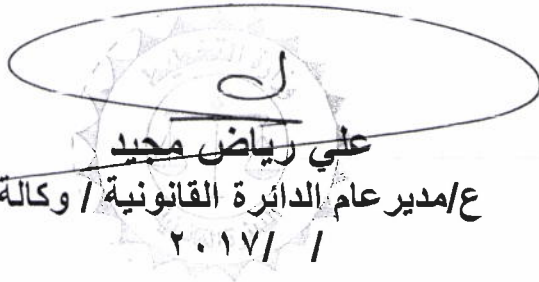 علي رياض مجيد
ع/مدير عام الدائرة القانونية / وكالة
/ /٢٠١٧